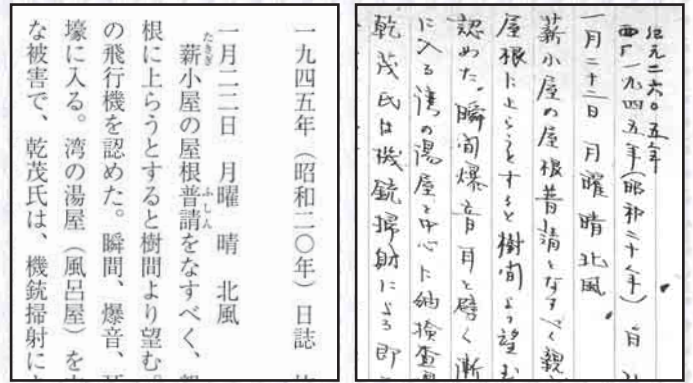 一九四五年（昭和二〇年）日誌
一月二二日　月曜　晴　北風
薪小屋の屋根普請をなすべく、
たきぎ
ふしん
根に上らうとすると樹間より望む。
の飛行機を認めた。瞬間、爆音、
壕に入る。湾の湯屋（風呂屋）を
な被害で、乾茂氏は、機銃掃射に
紀元二六〇五年
西一九四五年（昭和二十年）自
一月二十二日　月曜　晴　北風
薪小屋の屋根普請をなすべく親
屋根に上らうとすると樹間より望む
認めた。瞬間爆音耳を劈く漸
に入る湾の湯屋を中心に納検査
乾茂氏は機銃掃射による即